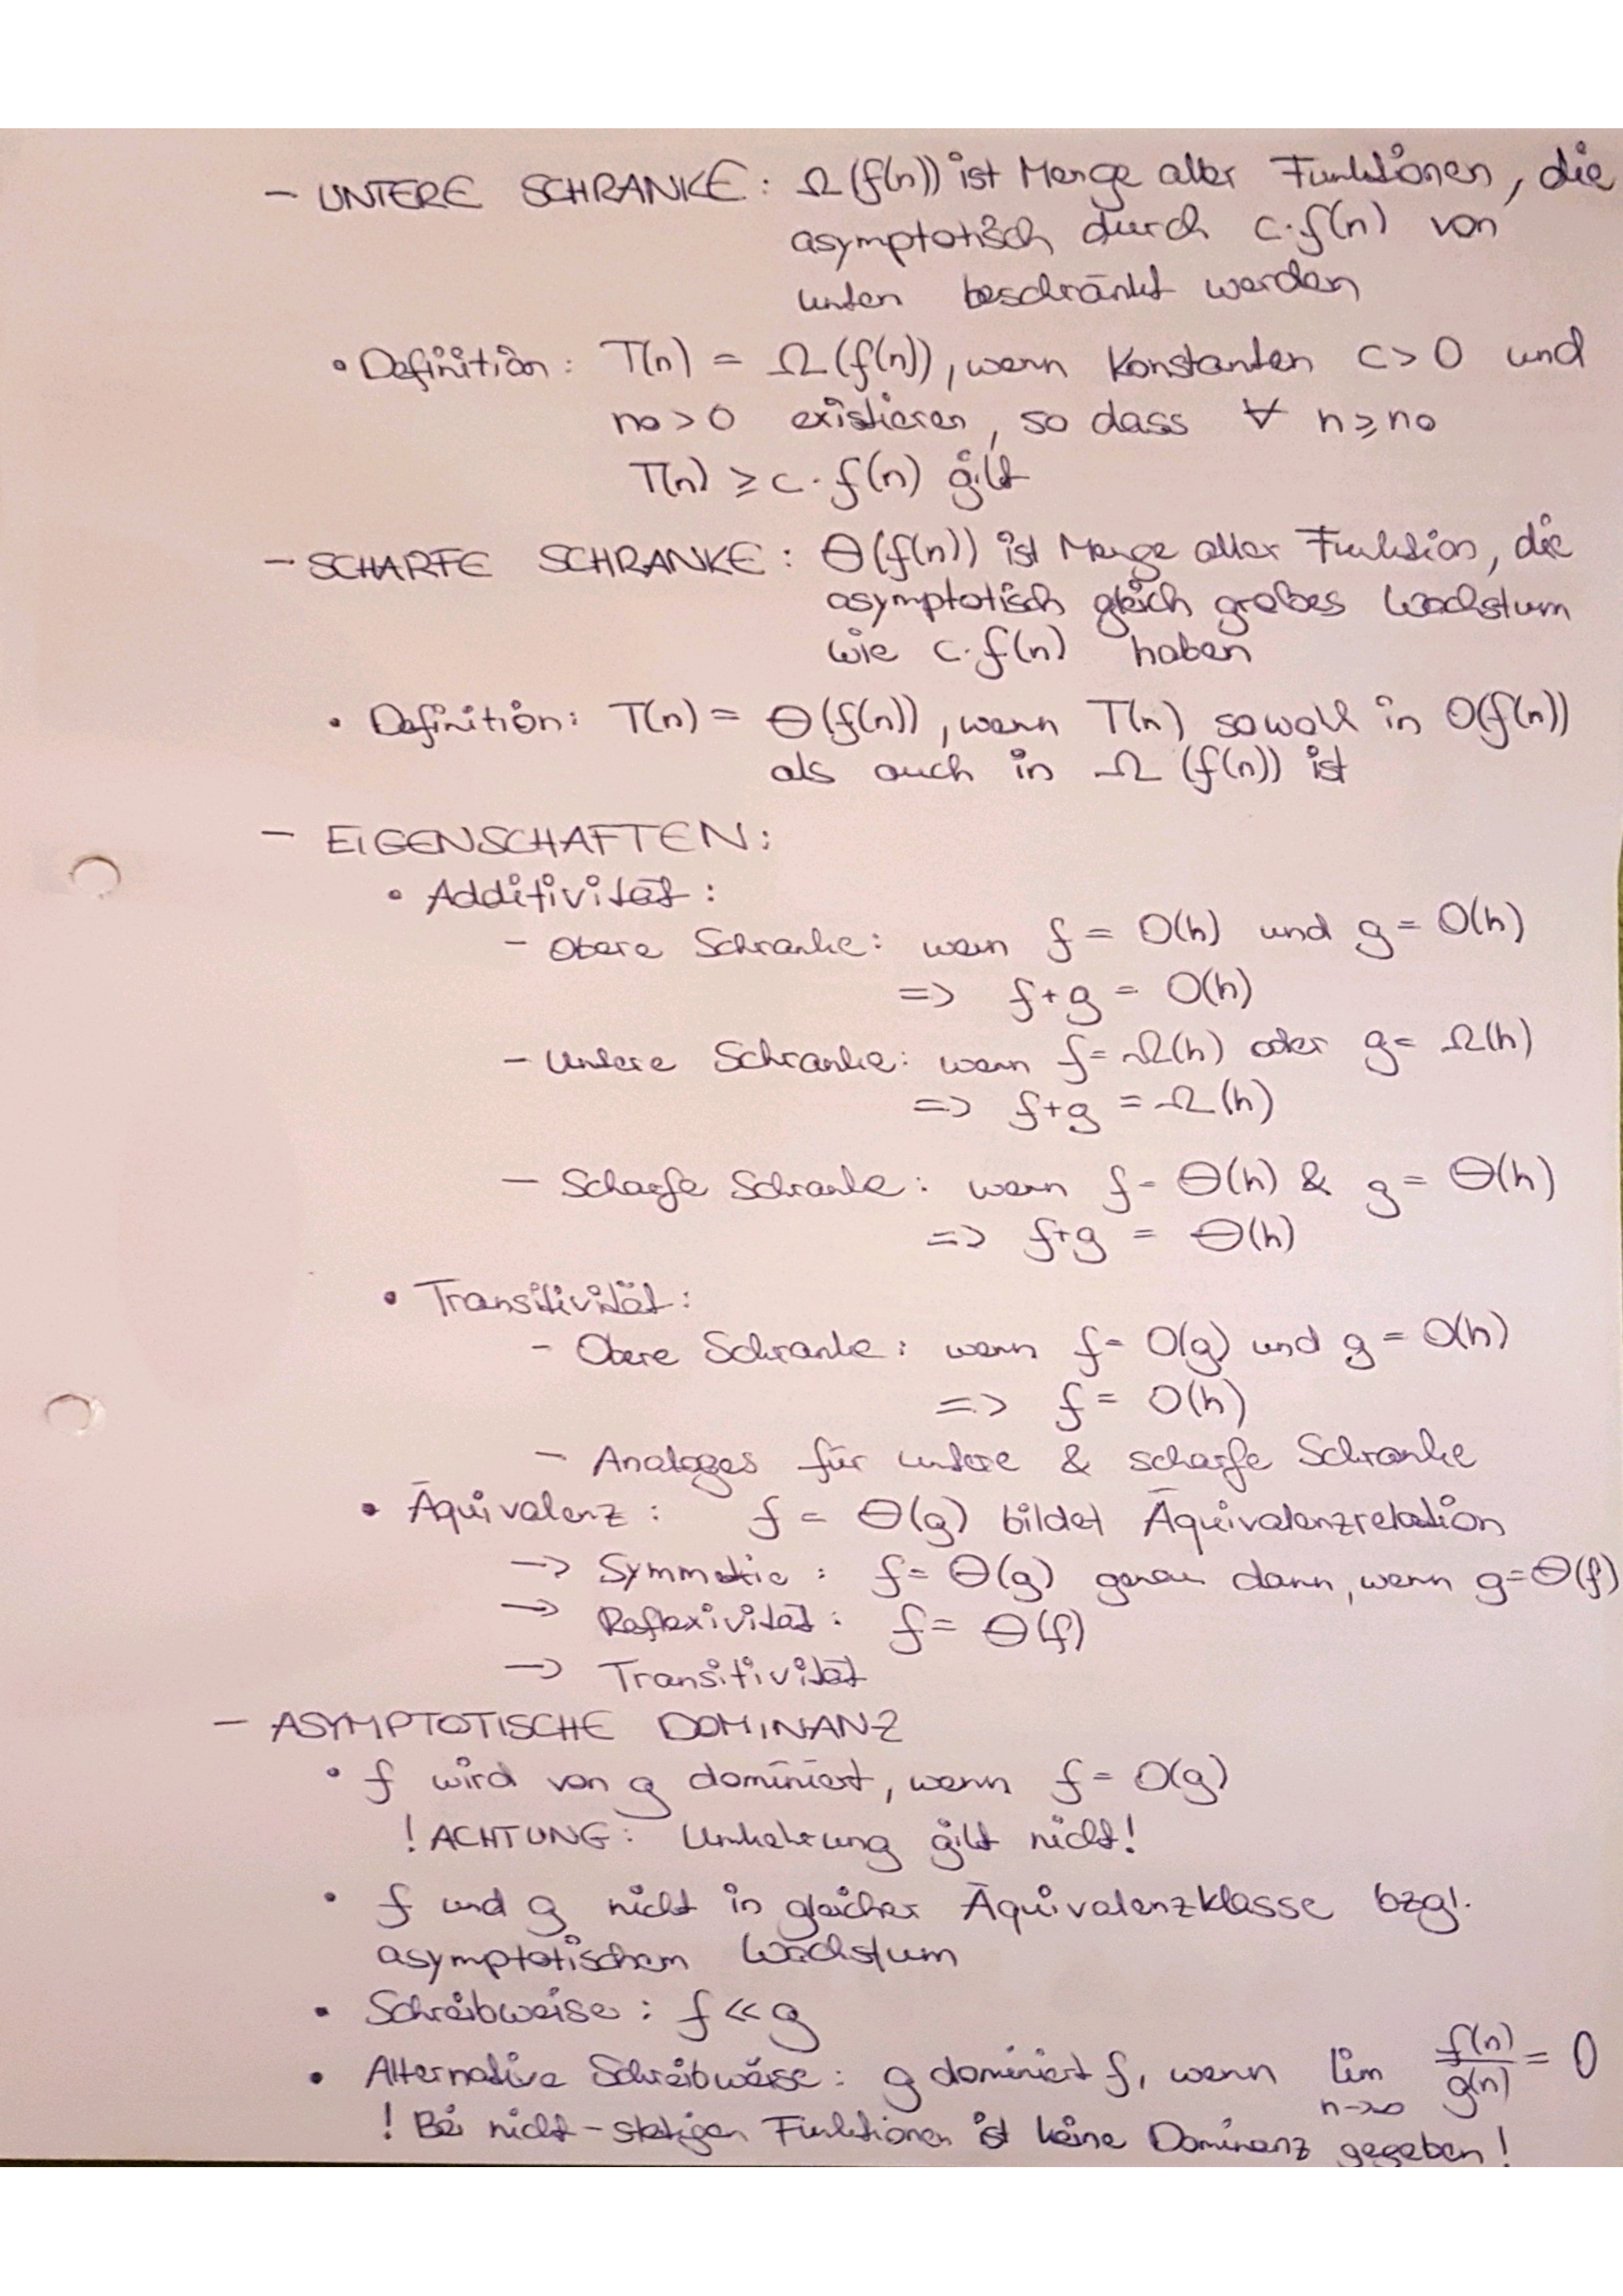 - UNTERE SCHRANKE: Ω(f(n)) ist Menge aller Funktionen, die
asymptotisch durch c·f(n) von
unten beschränkt werden
• Definition: T(n) = Ω(f(n)), wenn Konstanten c > 0 und
n₀ > 0 existieren, so dass ∀ n ≥ n₀
T(n) ≥ c·f(n) gilt
- SCHARFE SCHRANKE: Θ(f(n)) ist Menge aller Funktion, die
asymptotisch gleich großes Wachstum
wie c·f(n) haben
• Definition: T(n) = Θ(f(n)), wenn T(n) sowohl in O(f(n))
als auch in Ω(f(n)) ist
- EIGENSCHAFTEN:
• Additivität:
- Obere Schranke: wenn f = O(h) und g = O(h)
=> f+g = O(h)
- Untere Schranke: wenn f = Ω(h) oder g = Ω(h)
=> f+g = Ω(h)
- Scharfe Schranke: wenn f = Θ(h) & g = Θ(h)
=> f+g = Θ(h)
• Transitivität:
- Obere Schranke: wenn f = O(g) und g = O(h)
=> f = O(h)
- Analoges für untere & scharfe Schranke
• Äquivalenz: f = Θ(g) bildet Äquivalenzrelation
-> Symmetrie: f = Θ(g) genau dann, wenn g=Θ(f)
-> Reflexivität: f = Θ(f)
-> Transitivität
- ASYMPTOTISCHE DOMINANZ
• f wird von g dominiert, wenn f = O(g)
! ACHTUNG: Umkehrung gilt nicht!
• f und g nicht in gleicher Äquivalenzklasse bzgl.
asymptotischem Wachstum
• Schreibweise: f << g
• Alternative Schreibweise: g dominiert f, wenn lim n->∞ f(n)/g(n) = 0
! Bei nicht-stetigen Funktionen ist keine Dominanz gegeben!